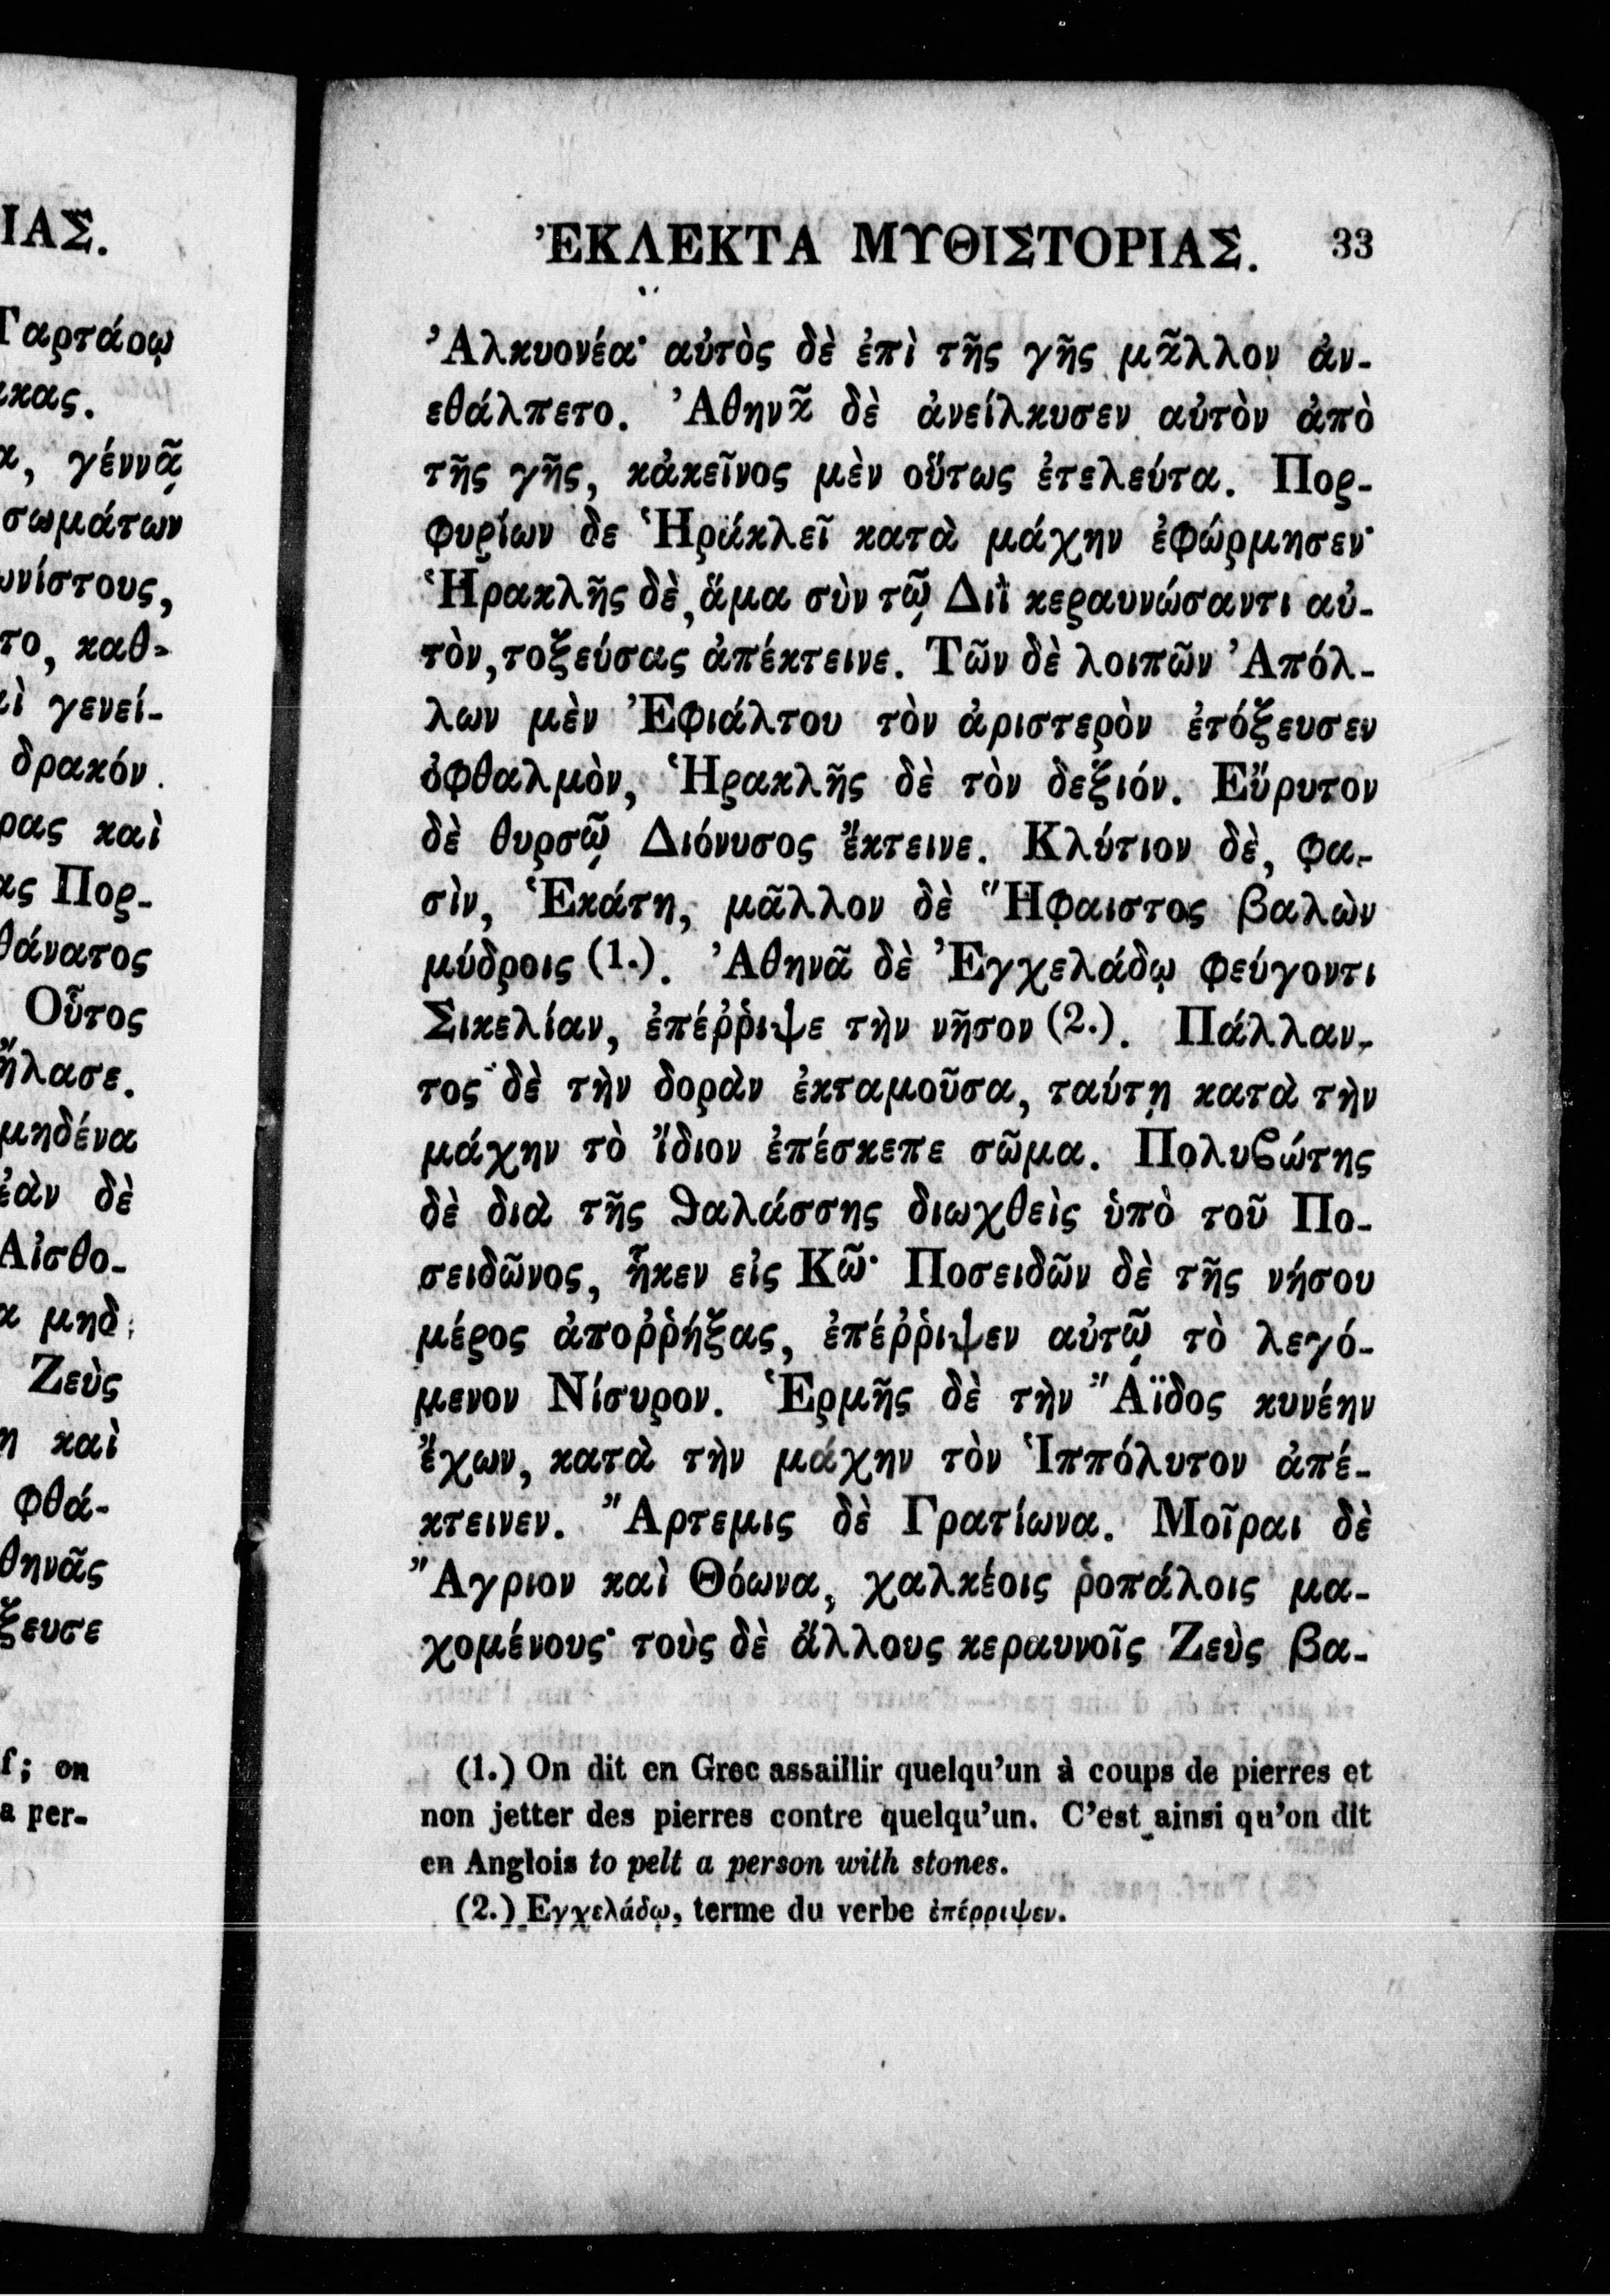 ΙΑΣ.
Ταρτάρῳ
κας.
γέννᾷ
σωμάτων
καθ-
γενεί-
δρακόν
καὶ
Πορ-
Οὗτος
δὲ
Ζεὺς
καὶ
φθά-
on
a per-
ἘΚΛΕΚΤΑ ΜΥΘΙΣΤΟΡΙΑΣ. 33
Ἀλκυονέα· αὐτὸς δὲ ἐπὶ τῆς γῆς μᾶλλον ἀν-
εθάλπετο. Ἀθηνᾶ δὲ ἀνείλκυσεν αὐτὸν ἀπὸ
τῆς γῆς, κἀκεῖνος μὲν οὕτως ἐτελεύτα. Πορ-
φυρίων δε Ἡράκλεῖ κατὰ μάχην ἐφώρμησεν·
Ἡρακλῆς δὲ, ἅμα σὺν τῷ Διῒ κεραυνώσαντι αὐ-
τὸν, τοξεύσας ἀπέκτεινε. Τῶν δὲ λοιπῶν Ἀπόλ-
λων μὲν Ἐφιάλτου τὸν ἀριστερὸν ἐτόξευσεν
ὀφθαλμὸν, Ἡρακλῆς δὲ τὸν δεξιόν. Εὔρυτον
δὲ θυρσῷ Διόνυσος ἔκτεινε. Κλύτιον δὲ, φα-
σὶν, Ἑκάτη, μᾶλλον δὲ Ἥφαιστος βαλὼν
μύδροις (1.). Ἀθηνᾶ δὲ Ἐγχελάδῳ φεύγοντι
Σικελίαν, ἐπέῤῥιψε τὴν νῆσον (2.). Πάλλαν-
τος δὲ τὴν δορὰν ἐκταμοῦσα, ταύτῃ κατὰ τὴν
μάχην τὸ ἴδιον ἐπέσκεπε σῶμα. Πολυϐώτης
δὲ διὰ τῆς ϑαλάσσης διωχθεὶς ὑπὸ τοῦ Πο-
σειδῶνος, ἧκεν εἰς Κῶ· Ποσειδῶν δὲ τῆς νήσου
μέρος ἀποῤῥήξας, ἐπέῤῥιψεν αὐτῷ τὸ λεγό-
μενον Νίσυρον. Ἑρμῆς δὲ τὴν Ἄϊδος κυνέην
ἔχων, κατὰ τὴν μάχην τὸν Ἱππόλυτον ἀπέ-
κτεινεν. Ἄρτεμις δὲ Γρατίωνα. Μοῖραι δὲ
Ἄγριον καὶ Θόωνα, χαλκέοις ῥοπάλοις μα-
χομένους· τοὺς δὲ ἄλλους κεραυνοῖς Ζεὺς βα-
(1.) On dit en Grec assaillir quelqu'un à coups de pierres et
non jetter des pierres contre quelqu'un. C'est ainsi qu'on dit
en Anglois to pelt a person with stones.
(2.) Εγχελάδῳ, terme du verbe ἐπέρριψεν.